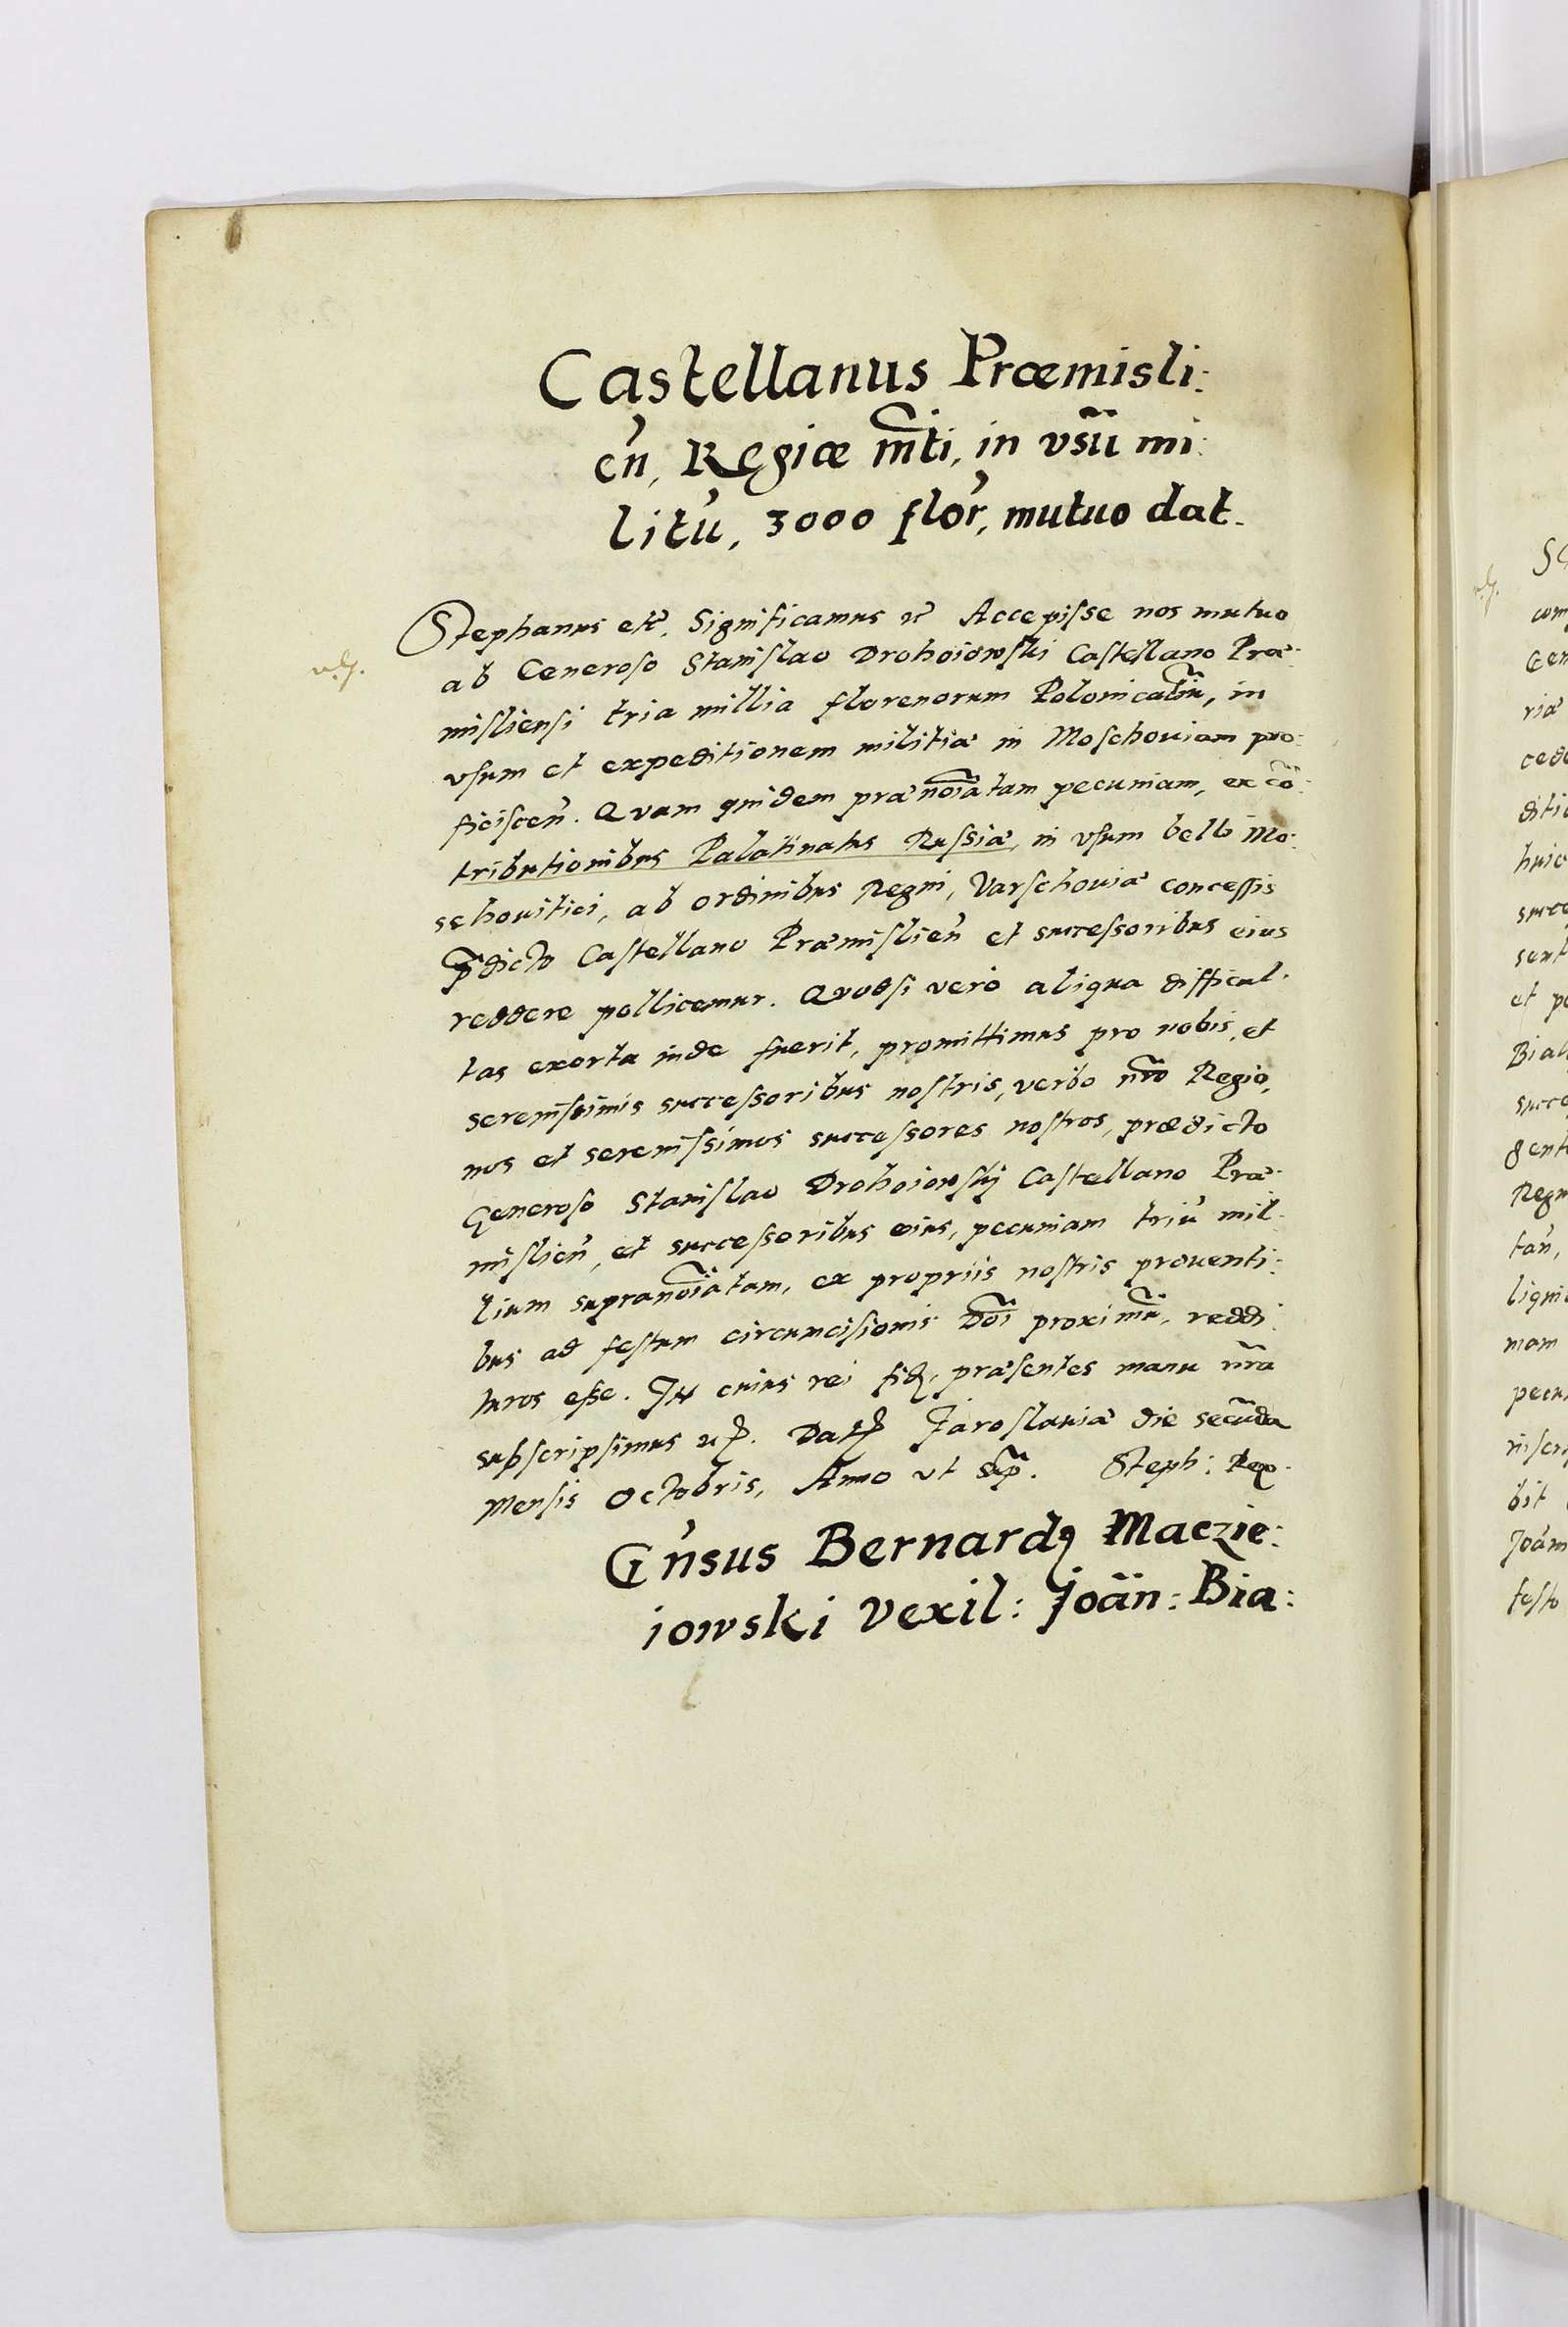 Castellanus Præmisli:
en̄, Regiæ m̃ti, in vsũ mi:
litū, 3000 flor̄, mutuo dat.
Stephanus etc̄, Significamus &c̄ Accepisse nos mutuo
ab Generoso Stanislao Drohoiowski Castellano Præ:
misliensi tria millia florenorum Polonicaliũ, in
vsum et expeditionem militiæ in Moschouiam pro:
ficiscen̄. Quam quidem prænoĩatam pecuniam, ex cõ:
tributionibus Palatinatus Russiæ, in vsum belli Mo:
schouitici, ab ordinibus Regni, Varschouiæ concessis
p̃dicto Castellano Præmislien̄ et successoribus eius
reddere pollicemur. Quodsi verò aliqua difficul:
tas exorta inde fuerit, promittimus pro nobis, et
serenissimis successoribus nostris, verbo nr̃o Regio,
nos et serenissimos successores nostros, prædicto
Generoso Stanislao Drohoiowskj Castellano Præ:
mislien̄, et successoribus eius, pecuniam triū mil:
lium supranoĩatam, ex propriis nostris prouenti:
bus ad festum circumcisionis Doĩ proximũ, reddi:
turos esse. In cuius rei fid., præsentes manu nr̃a
subscripsimus &c. Dat. Jaroslauiæ die secũda
Mensis Octobris, Anno vt sup̃. Steph: Rex.
Gn̄sus Bernardꝯ Maczie:
iowski Vexil: Joãn: Bia:
SC
com
Gen
riæ
cede
ditio
huic
succe
sent
et pe
Bial
succe
gent
Regn
tan̄,
ligni
mam
pecu
inscr
bit
Joan
festo